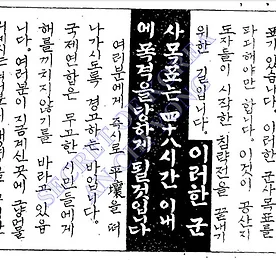 이러한 군사목표를
파괴해야만 합니다 이것이 공산지
도자들이 시작한 침략전을 끝내기
위한 길입니다. 이러한 군
사목표는 四十八시간 이내
에 폭격을당하게 될것입니다
여러분에게 즉시로 平壤을 떠
나가시도록 경고하는 바입니다.
국제연합은 무고한 시민들에게
해를끼치지않기를 바라고 있읍
니다. 여러분이 지금계신곳에